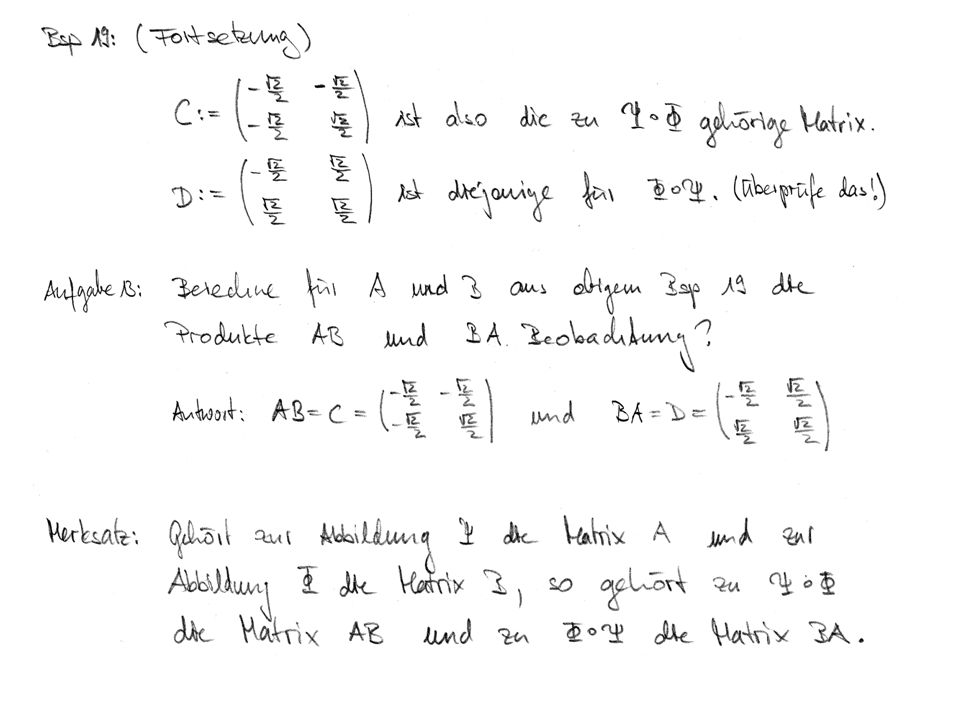 Bsp 19: (Fortsetzung)
C := ( -√2/2 -√2/2 ; -√2/2 √2/2 ) ist also die zu Ψ∘Φ gehörige Matrix.
D := ( -√2/2 √2/2 ; √2/2 √2/2 ) ist diejenige für Φ∘Ψ. (Überprüfe das!)
Aufgabe 13: Berechne für A und B aus obigem Bsp 19 die
Produkte AB und BA. Beobachtung?
Antwort: AB = C = ( -√2/2 -√2/2 ; -√2/2 √2/2 ) und BA = D = ( -√2/2 √2/2 ; √2/2 √2/2 )
Merksatz: Gehört zur Abbildung Ψ die Matrix A und zur
Abbildung Φ die Matrix B, so gehört zu Ψ∘Φ
die Matrix AB und zu Φ∘Ψ die Matrix BA.